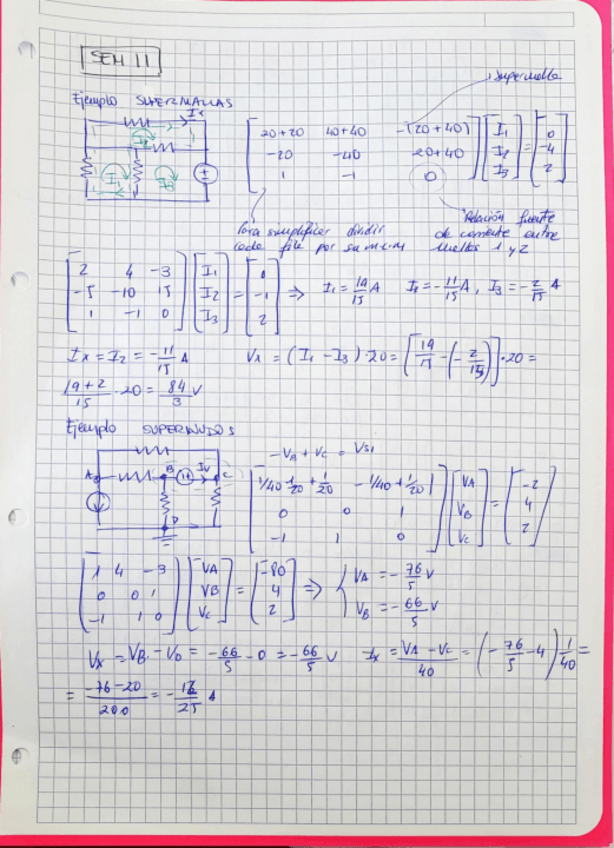 SEM 11
Supermalla
Ejemplo SUPERMALLAS
Ix
[20+20 40+40 -(20+40)] [I1] = [0]
[-20 -40 20+40] [I2] [-4]
[1 -1 0] [I3] [2]
I2
I1 I3
Para simplificar dividir
cada fila por su m.c.m
Relación fuente
de corriente entre
mallas 1 y 2
[2 4 -3] [I1] = [0]
[-5 -10 15] [I2] [-1]
[1 -1 0] [I3] [2]
⇒ I1 = 19/15 A I2 = -11/15 A, I3 = -2/15 A
Ix = I2 = -11/15 A Vx = (I1 - I3)·20 = [19/15 - (-2/15)]·20 =
19+2/15 · 20 = 84/3 V
Ejemplo SUPERNUDOS
-VA + VC = VS1
A B Iv C
D
[1/40 1/20+1/20 -1/40+1/20] [VA] = [-2]
[0 0 1] [VB] [4]
[-1 1 0] [VC] [2]
[1 4 -3] [VA] = [-80]
[0 0 1] [VB] [4]
[-1 1 0] [VC] [2]
⇒ { VA = -76/5 V
VB = -66/5 V
Vx = VB - VD = -66/5 - 0 = -66/5 V Ix = VA - VC/40 = (-76/5 - 4) 1/40 =
= -76-20/200 = -12/25 A